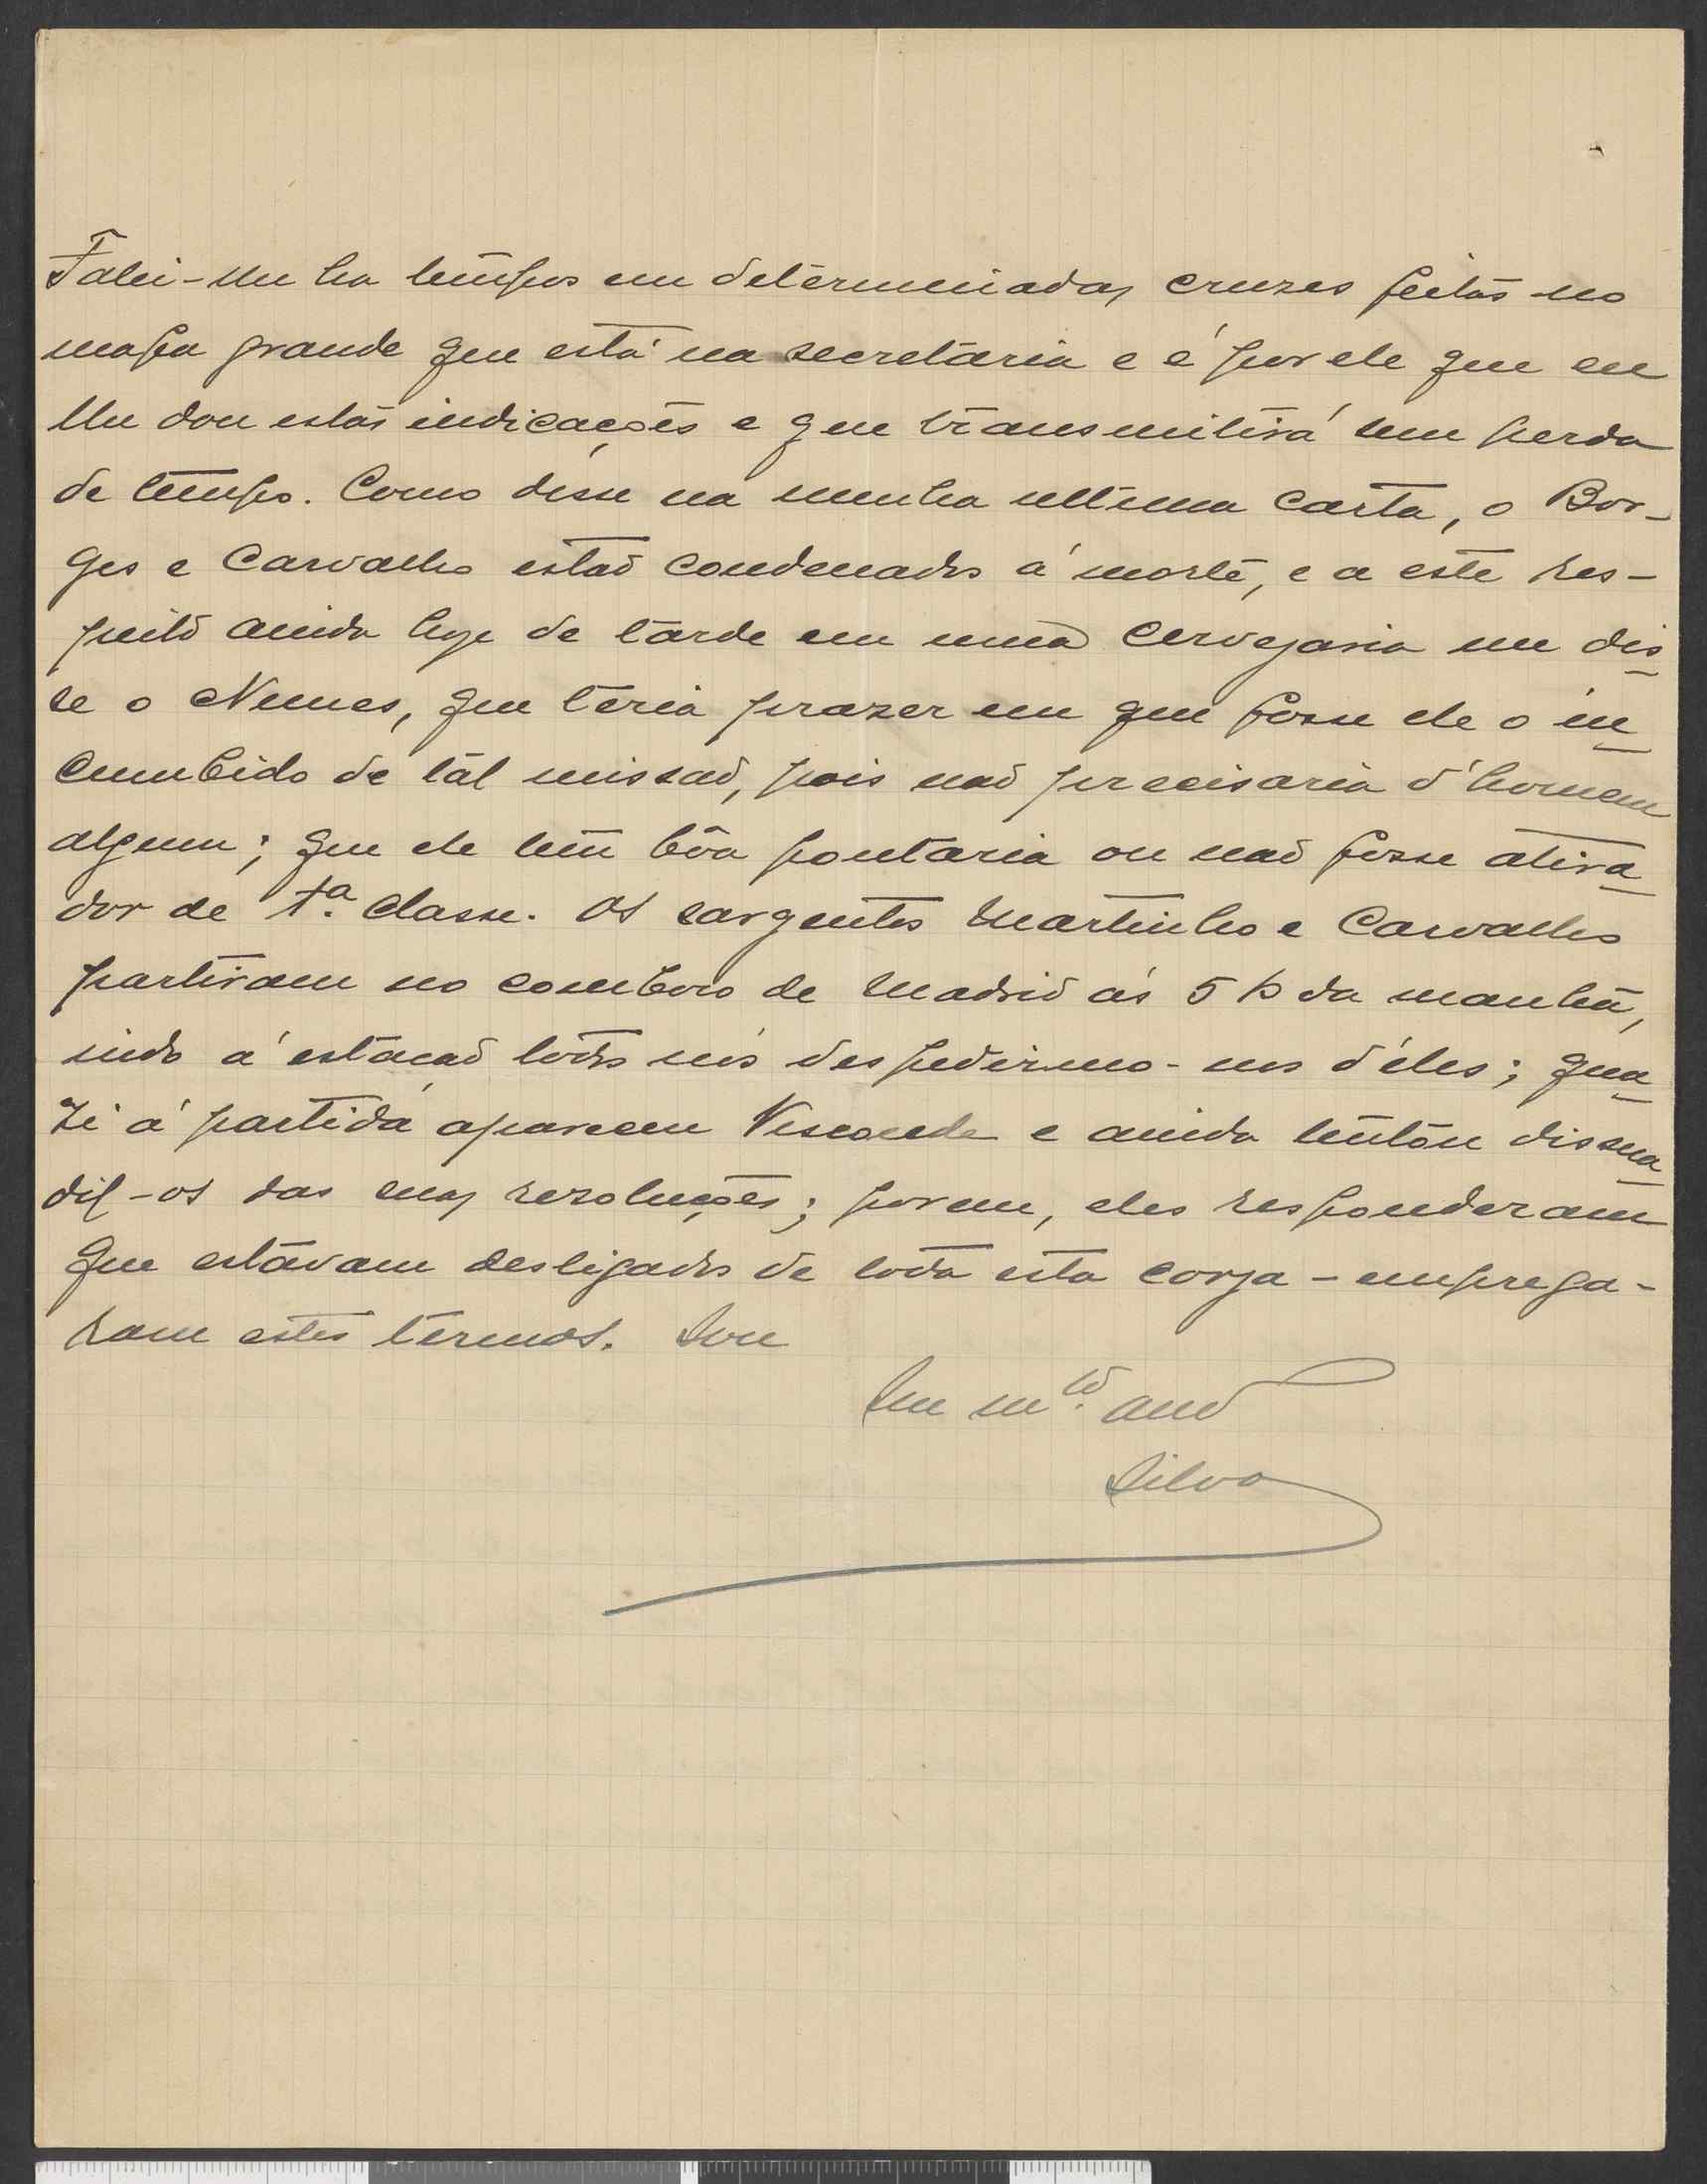 Falei-lhe ha tempos em determinadas cruzes feitas no
mapa grande que está na secretaria e é por ele que eu
lhe dou estas indicações e que transmitirá sem perda
de tempo. Como disse na minha ultima carta, o Bor-
ges e Carvalho estaõ condenados á morte, e a este res-
peito ainda hoje de tarde em uma cervejaria me dis-
se o Nunes, que teria prazer em que fosse ele o in-
cumbido de tal missaõ, pois naõ precisaria d'homem
algum; que ele tem bôa pontaria ou naõ fosse atira-
dor de 1ª. classe. Os sargentos Martinho e Carvalho
partiram no comboio de Madrid ás 5 h da manhã,
indo á estaçaõ todos nós despedirmo-nos d'éles; qua-
zi á partida apareceu Visconde e ainda tentou dissua-
dil-os das suas rezoluções; porem, eles responderam
que estavam desligados de toda esta corja - emprega-
ram estes termos. Sou
Seu mtº. amº
Silva